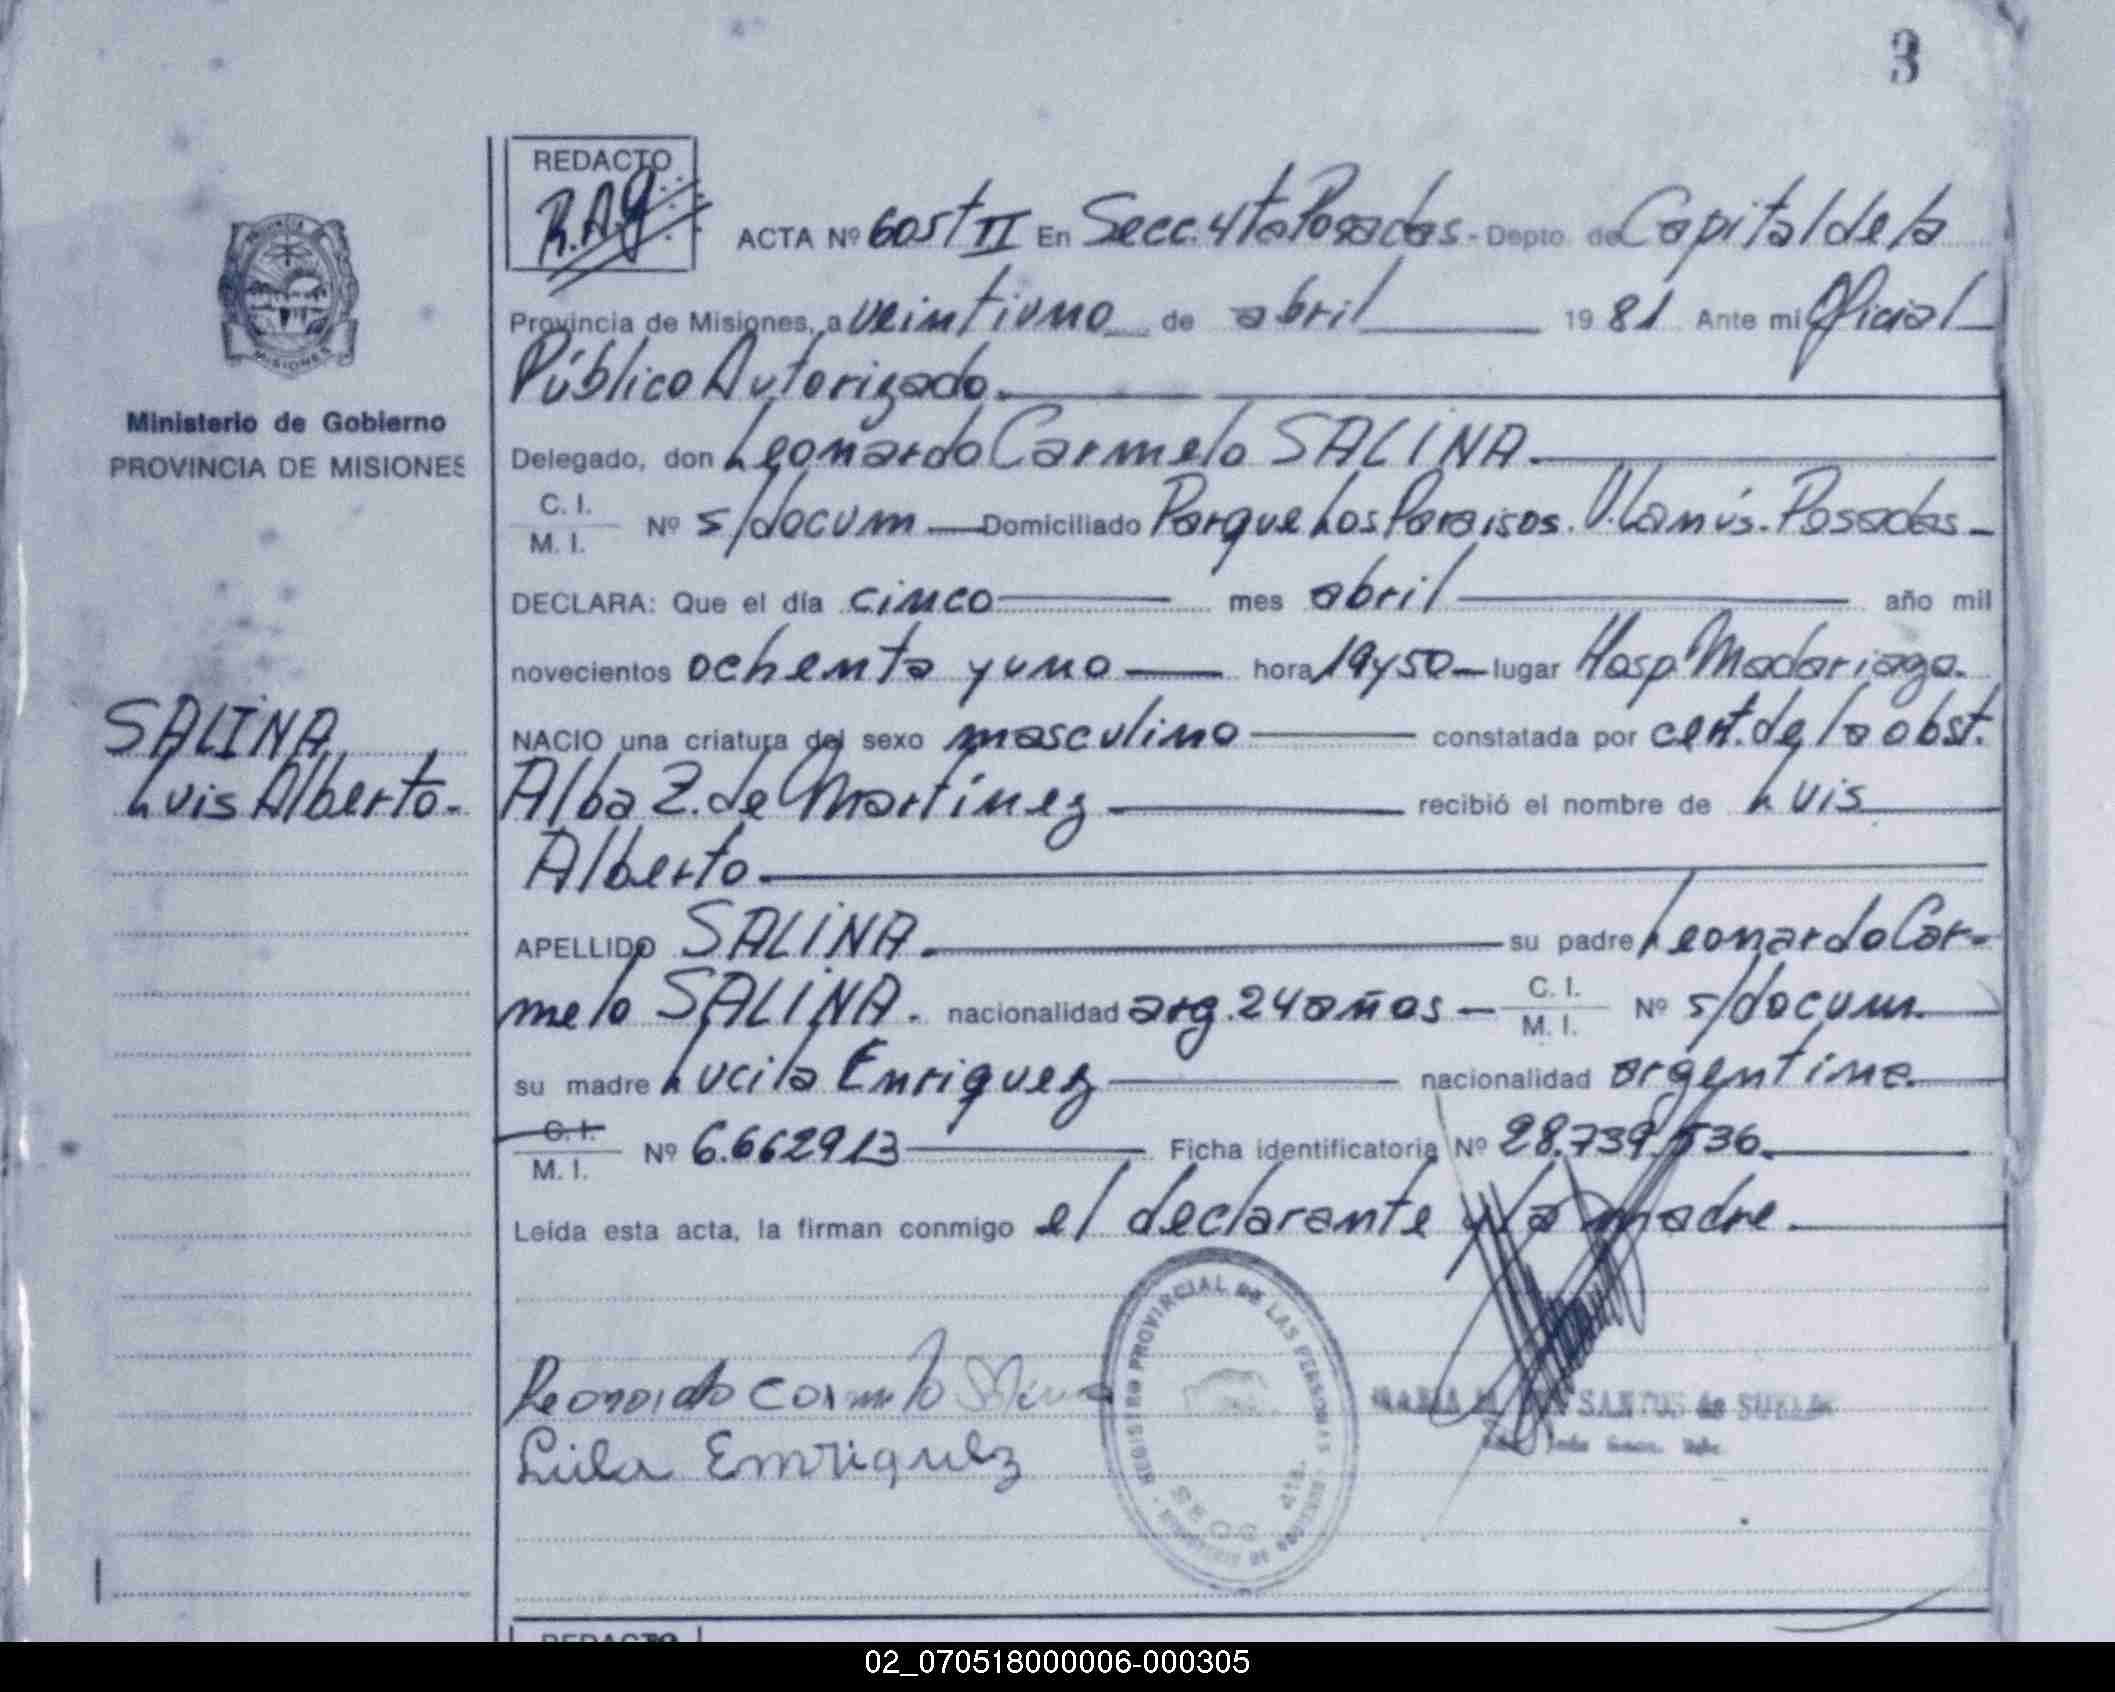 3
REDACTO
R.A.G
ACTA Nº 605/T II En Secc. 4ta Posadas - Depto. de Capital de la
Provincia de Misiones, a veintiuno de abril 1981 Ante mi Oficial
Público Autorizado.
Delegado, don Leonardo Carmelo SALINA.
C. I.
M. I. Nº s/docum Domiciliado Parque Los Paraisos. V. Lanús. Posadas
DECLARA: Que el día cinco mes abril año mil
novecientos ochenta y uno hora 19 y 50 lugar Hosp Madariaga.
NACIO una criatura del sexo masculino constatada por cert. de la obst.
Alba Z. de Martínez recibió el nombre de Luis
Alberto
APELLIDO SALINA. su padre Leonardo Car-
melo SALINA. nacionalidad arg. 24 años C. I. M. I. Nº s/docum.
su madre Lucila Enriquez nacionalidad argentina.
C. I.
M. I. Nº 6.662913 Ficha identificatoria Nº 28.739.536.
Leída esta acta, la firman conmigo el declarante y la madre.
Leonardo Carmelo Salina
Lucila Enriquez
REGISTRO PROVINCIAL DE LAS PERSONAS
SECC 4ta.
SANTOS de
PROVINCIA
MISIONES
Ministerio de Gobierno
PROVINCIA DE MISIONES
SALINA
Luis Alberto.
REDACTO
02_070518000006-000305